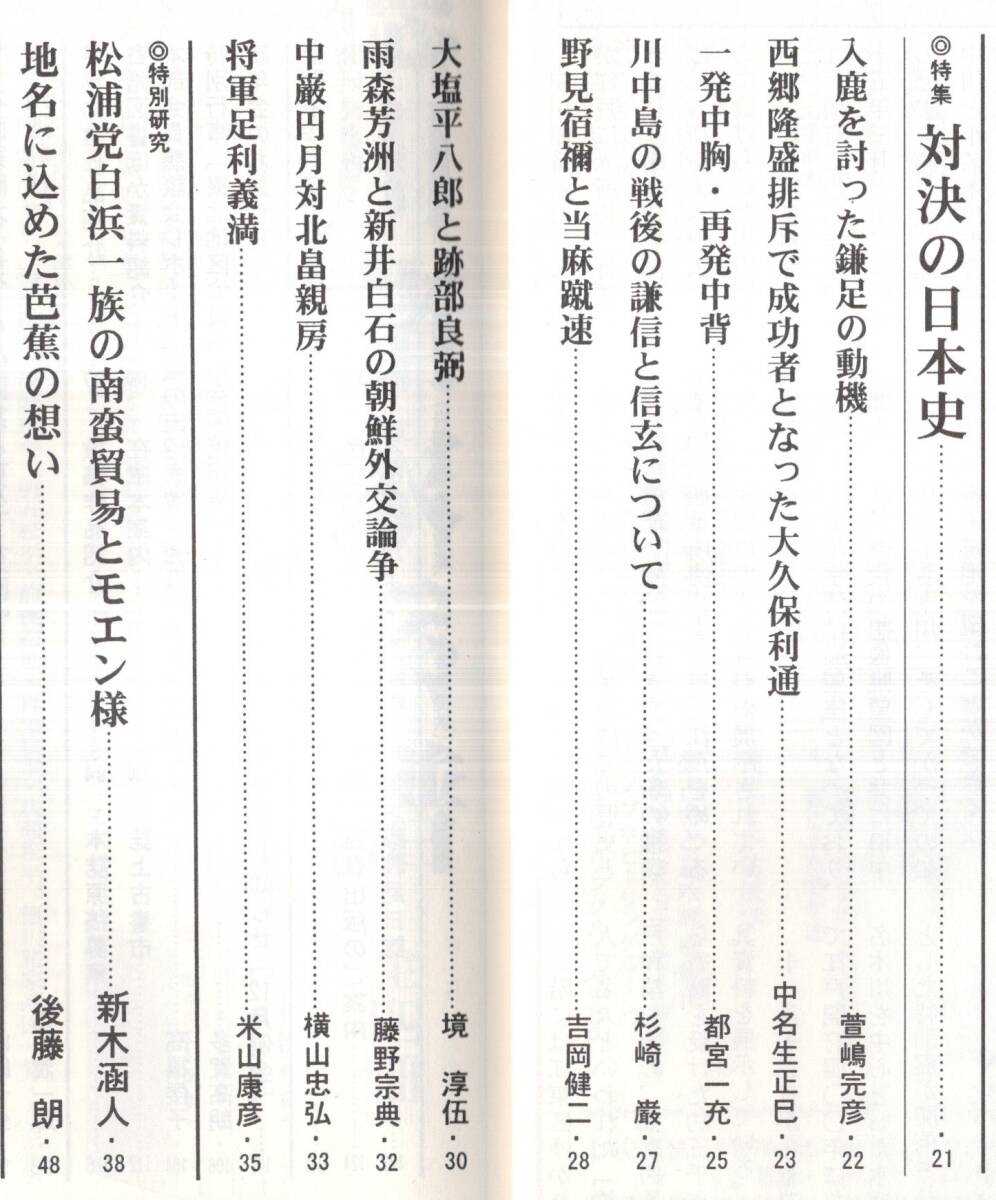 ◎特集 対決の日本史……21
入鹿を討った鎌足の動機……萱嶋完彦 22
西郷隆盛排斥で成功者となった大久保利通……中名生正巳 23
一発中胸・再発中背……都宮一充 25
川中島の戦後の謙信と信玄について……杉崎 巌 27
野見宿禰と当麻蹴速……吉岡健二 28
大塩平八郎と跡部良弼……境 淳伍・30
雨森芳洲と新井白石の朝鮮外交論争……藤野宗典・32
中巌円月対北畠親房……横山忠弘・33
将軍足利義満……米山康彦・35
◎特別研究
松浦党白浜一族の南蛮貿易とモエン様……新木涵人・38
地名に込めた芭蕉の想い……後藤 朗・48